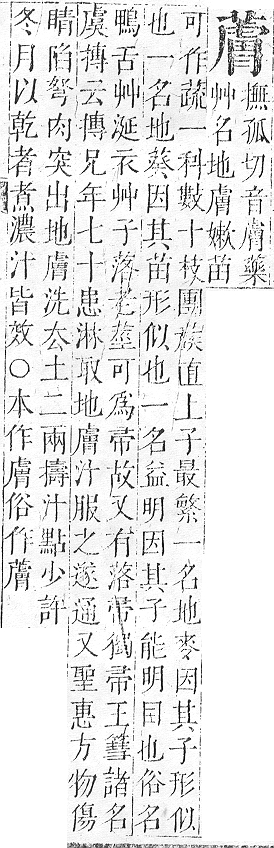 撫孤切音膚藥
艸名地膚嫩苗
可作蔬一科數十枝團族直上子最繁一名地麥因其子形似
也一名地葵因其苗形似也一名益明因其子能明目也俗名
鴨舌艸涎衣艸子落老莖可爲帚故又有落帚獨帚王篲諸名
虞摶云摶兄年七十患淋取地膚汁服之遂通又聖惠方物傷
睛陷弩肉突出地膚洗厺土二兩擣汁點少許
冬月以乾者煮濃汁皆效○本作膚俗作